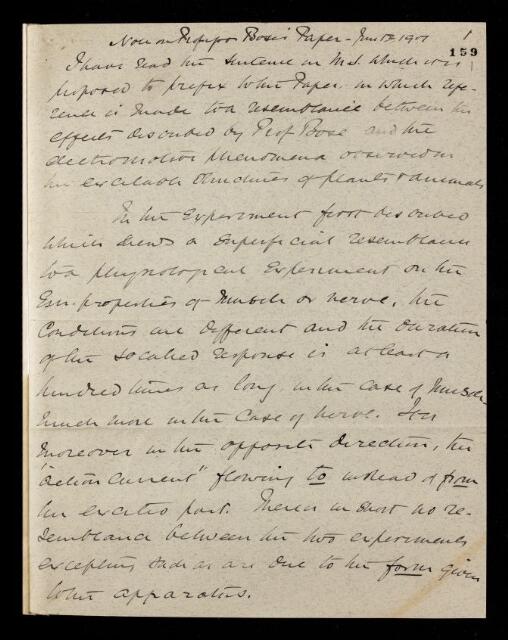 Note on Professor Bose's Paper - June 1st 1901
1
159
I have read the sentence in M.S. which was
proposed to prefix to the Paper in which refe-
rence is made to a resemblance between the
effects described by Prof Bose and the
electromotor phenomena observed in
the excitable structures of plants & animals
In the Experiment first described
which shews a superficial resemblance
to a physiological Experiment on the
properties of muscle or nerve, the
Conditions are different and the duration
of the so called response is at least a
hundred times as long in the case of muscle
much more in the case of nerve. It is
moreover in the opposite direction, the
"action current" flowing to instead of from
the excited part. There is in short no re-
semblance between the two experiments
excepting such as are due to the form given
to the apparatus.